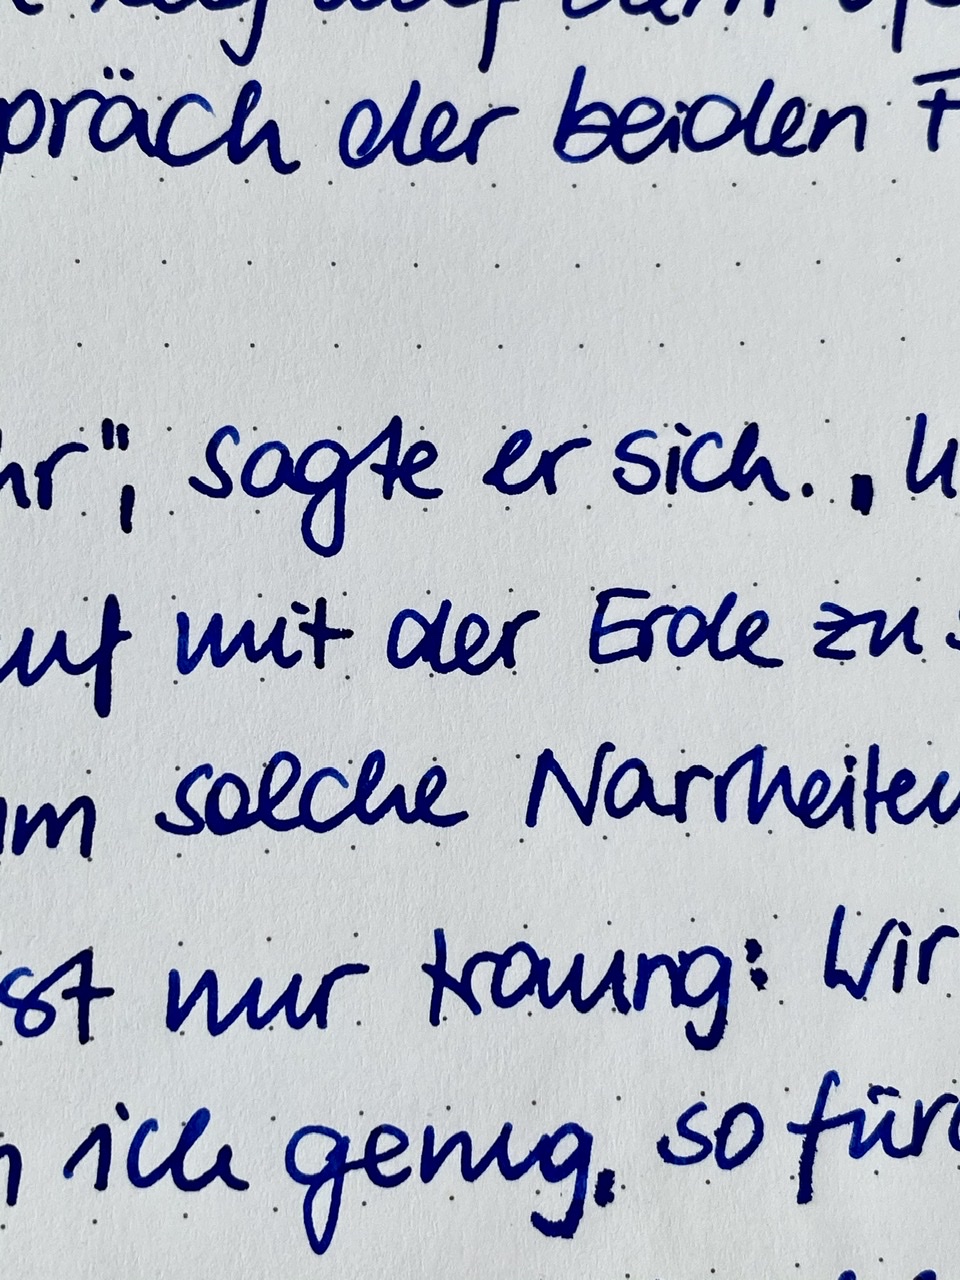 auf dem
präch der beiden F
hr", sagte er sich. „U
uf mit der Erde zu s
um solche Narrheiten
st nur traurig: Wir
ich genug, so für